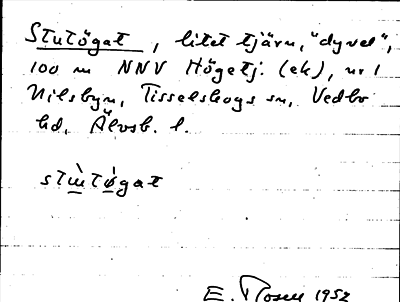 Stutögat, litet tjärn, "dyvel",
100 m NNV Högetj. (ek), nr 1
Nilsbyn, Tisselskogs sn, Vedbo
hd, Älvsb. l.
E. 1952